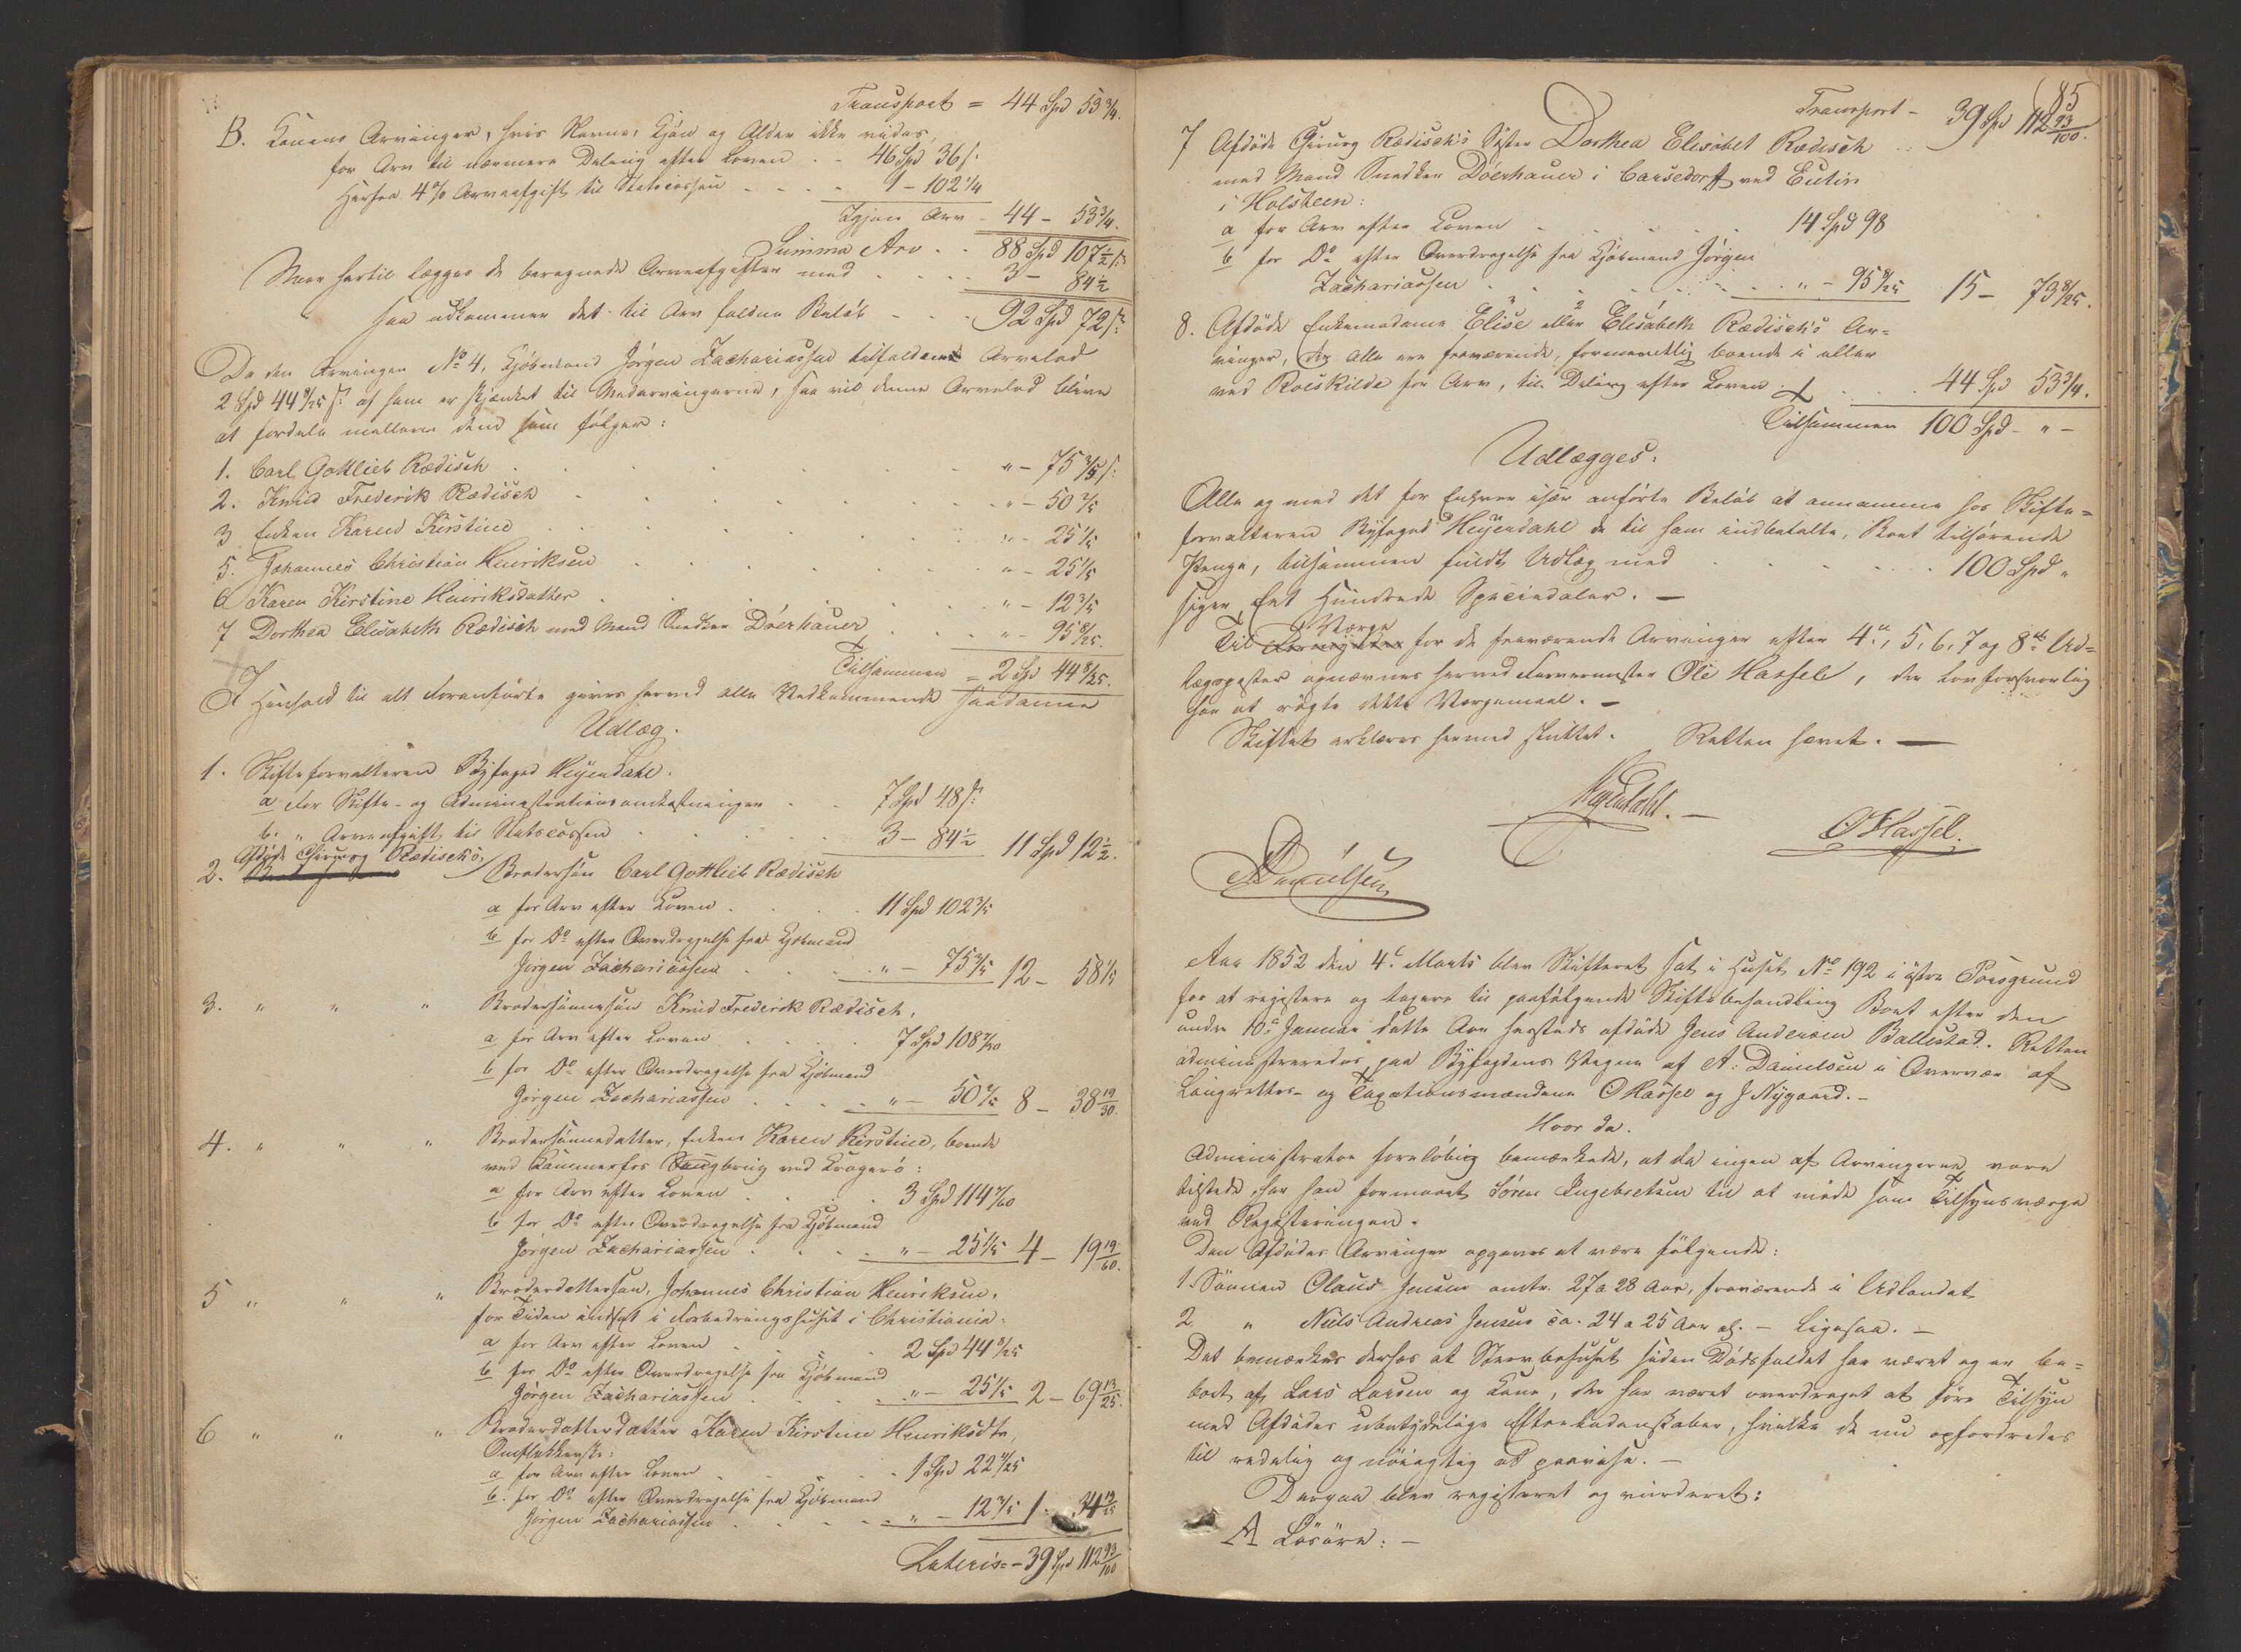 Transport = 44 Spd 53 3/4.
B. Konens Arvinger, hvis Navne, Kjøn og Alder ikke vides,
for Arv til nærmere Deling efter Loven - - 46 Spd 36 s:
Herfra 4% Arveafgift til Statscassen - - - - 1 - 102 1/4
Igjen Arv - 44 - 53 3/4.
Summa Arv - - 88 Spd 107 1/2 s:
Men hertil lægges de beregnede Arveafgifter med - - - - 3 - 84 1/2
saa udkommer det til Arv faldne Beløb - - - 92 Spd 72 s:
Da den Arvingen No 4, Kjøbmand Jørgen Zachariassen tilfaldende Arvelod
2 Spd 44 8/25 s: af ham er skjænket til Medarvingerne, saa vil denne Arvelod blive
at fordele mellem dem som følger:
1. Carl Gottlieb Rædisch . . . . . " - 75 3/5 s:
2. Knud Frederik Rædisch . . . . . " - 50 2/5
3 Enken Karen Kirstine . . . . . " - 25 1/5
5. Johannes Christian Henriksen . . . . . " - 25 1/5
6 Karen Kirstine Henriksdatter . . . . . " - 12 3/5
7 Dorthea Elisabeth Rædisch med Mand Snedker Döerhauer . . . . " - 95 8/25.
Tilsammen = 2 Spd 44 8/25.
I Henhold til alt Foranførte gives herved alle Vedkommende saadanne
Udlæg.
1. Skifteforvalteren Byfoged Heyerdahl.
a for Skifte- og Administrationsomkostninger - - 7 Spd 48 s:
b. " Arveafgift til Statscassen . . . . 3 - 84 1/2 11 Spd 12 1/2.
Afdøde Chirurg Rædisch's
2. Brodersøn Carl Gottlieb Rædisch
a for Arv efter Loven . . . . 11 Spd 102 3/5
b for Do efter Overdragelse fra Kjøbmand
Jørgen Zachariassen . . . . " - 75 3/5 12 - 58 1/5
3. " " " Brodersønnesøn Knud Frederik Rædisch,
a for Arv efter Loven . . . . 7 Spd 108 7/30
b for Do efter Overdragelse fra Kjøbmand
Jørgen Zachariassen . . . . " - 50 2/5 8 - 38 19/30.
4. " " " Brodersønnedatter, Enken Karen Kirstine, boende
ved Kammerfos ved Kragerö:
a for Arv efter Loven . . . . 3 Spd 114 7/60
b for Do efter Overdragelse fra Kjøbmand
Jørgen Zachariassen . . . . " - 25 1/5 4 - 19 19/60.
5 " " " Broderdattersøn, Johannes Christian Henriksen,
for Tiden indsat i Forbedringshuset i Christiania:
a for Arv efter Loven . . . . 2 Spd 44 8/25
b for Do efter Overdragelse fra Kjøbmand
Jørgen Zachariassen . . . . " - 25 1/5 2 - 69 13/25.
6 " " " Broderdatterdatter Karen Kirstine Henriksdtr,
Omflakkerske:
a for Arv efter Loven . . . . 1 Spd 22 4/25
b. for Do efter Overdragelse fra Kjøbmand
Jørgen Zachariassen . . . . " - 12 3/5 1 - 34 19/25
Lateris = - 39 Spd 112 93/100
85
Transport - 39 Spd 112 93/100.
7 Afdøde Chirurg Rædisch's Søster Dorthea Elisabet Rædisch
med Mand Snedker Döerhauer i Carsedorff ved Eutin
i Holsteen:
a for Arv efter Loven . . . . 14 Spd 98
b for Do efter Overdragelse fra Kjøbmand Jørgen
Zachariassen . . . . " - 95 8/25 15 - 73 8/25.
8. Afdøde Enkemadame Elise eller Elisabeth Rædisch's Ar-
vinger, der alle ere fraværende, formeentlig boende i eller
ved Roeskilde for Arv, til Deling efter Loven . . . 44 Spd 53 3/4.
Tilsammen 100 Spd - " -
Udlægges:
Alle og med det for Enhver især anførte Beløb at annamme hos Skifte-
forvalteren Byfoged Heyerdahl de til ham indbetalte, Boet tilhørende
Penge, tilsammen fuldt Udlæg med . . . . . 100 Spd "
siger, Eet Hundrede Speciedaler. -
Værge
Til for de fraværende Arvinger efter 4de, 5, 6, 7 og 8de Ud-
lægsposter opnævnes herved Farvermester Ole Hassel, der lovforsvarlig
har at røgte dette Værgemaal. -
Skiftet erklæres hermed sluttet. Retten hævet. -
Heyerdahl. -
O Hassel.
A Danielsen
Aar 1852 den 4de Marts blev Skifteret sat i Huset No 192 i østre Porsgrund
for at registere og taxere til paafølgende Skiftebehandling Boet efter den
under 10de Januar dette Aar hersteds afdøde Jens Andersen Ballestad. Retten
administreredes paa Byfogdens Vegne af A: Danielsen i Overvær af
Laugrettes- og Taxationsmændene O Hassel og J Nygaard. -
Hvor da.
Administrator foreløbig bemærkede, at da ingen af Arvingerne vare
tilstede, har han formaaet Søren Engebretsen til at møde som Tilsynsværge
ved Registeringen.
Den Afdødes Arvinger opgaves at være følgende:
1. Sønnen Olaus Jensen omtr. 27 a 28 Aar, fraværende i Udlandet
2 " Niels Andreas Jensen ca. 24 a 25 Aar gl. - Ligesaa. -
Det bemærkes derhos at Stervbohuset siden Dødsfaldet har været og er be-
boet af Lars Larsen og Kone, der har været overdraget at føre Tilsyn
med Afdødes ubetydelige Efterladenskaber, hvilke de nu opfordredes
til redelig og nøiagtig at paavise. -
Derpaa blev registeret og vurderet:
A Løsøre: -